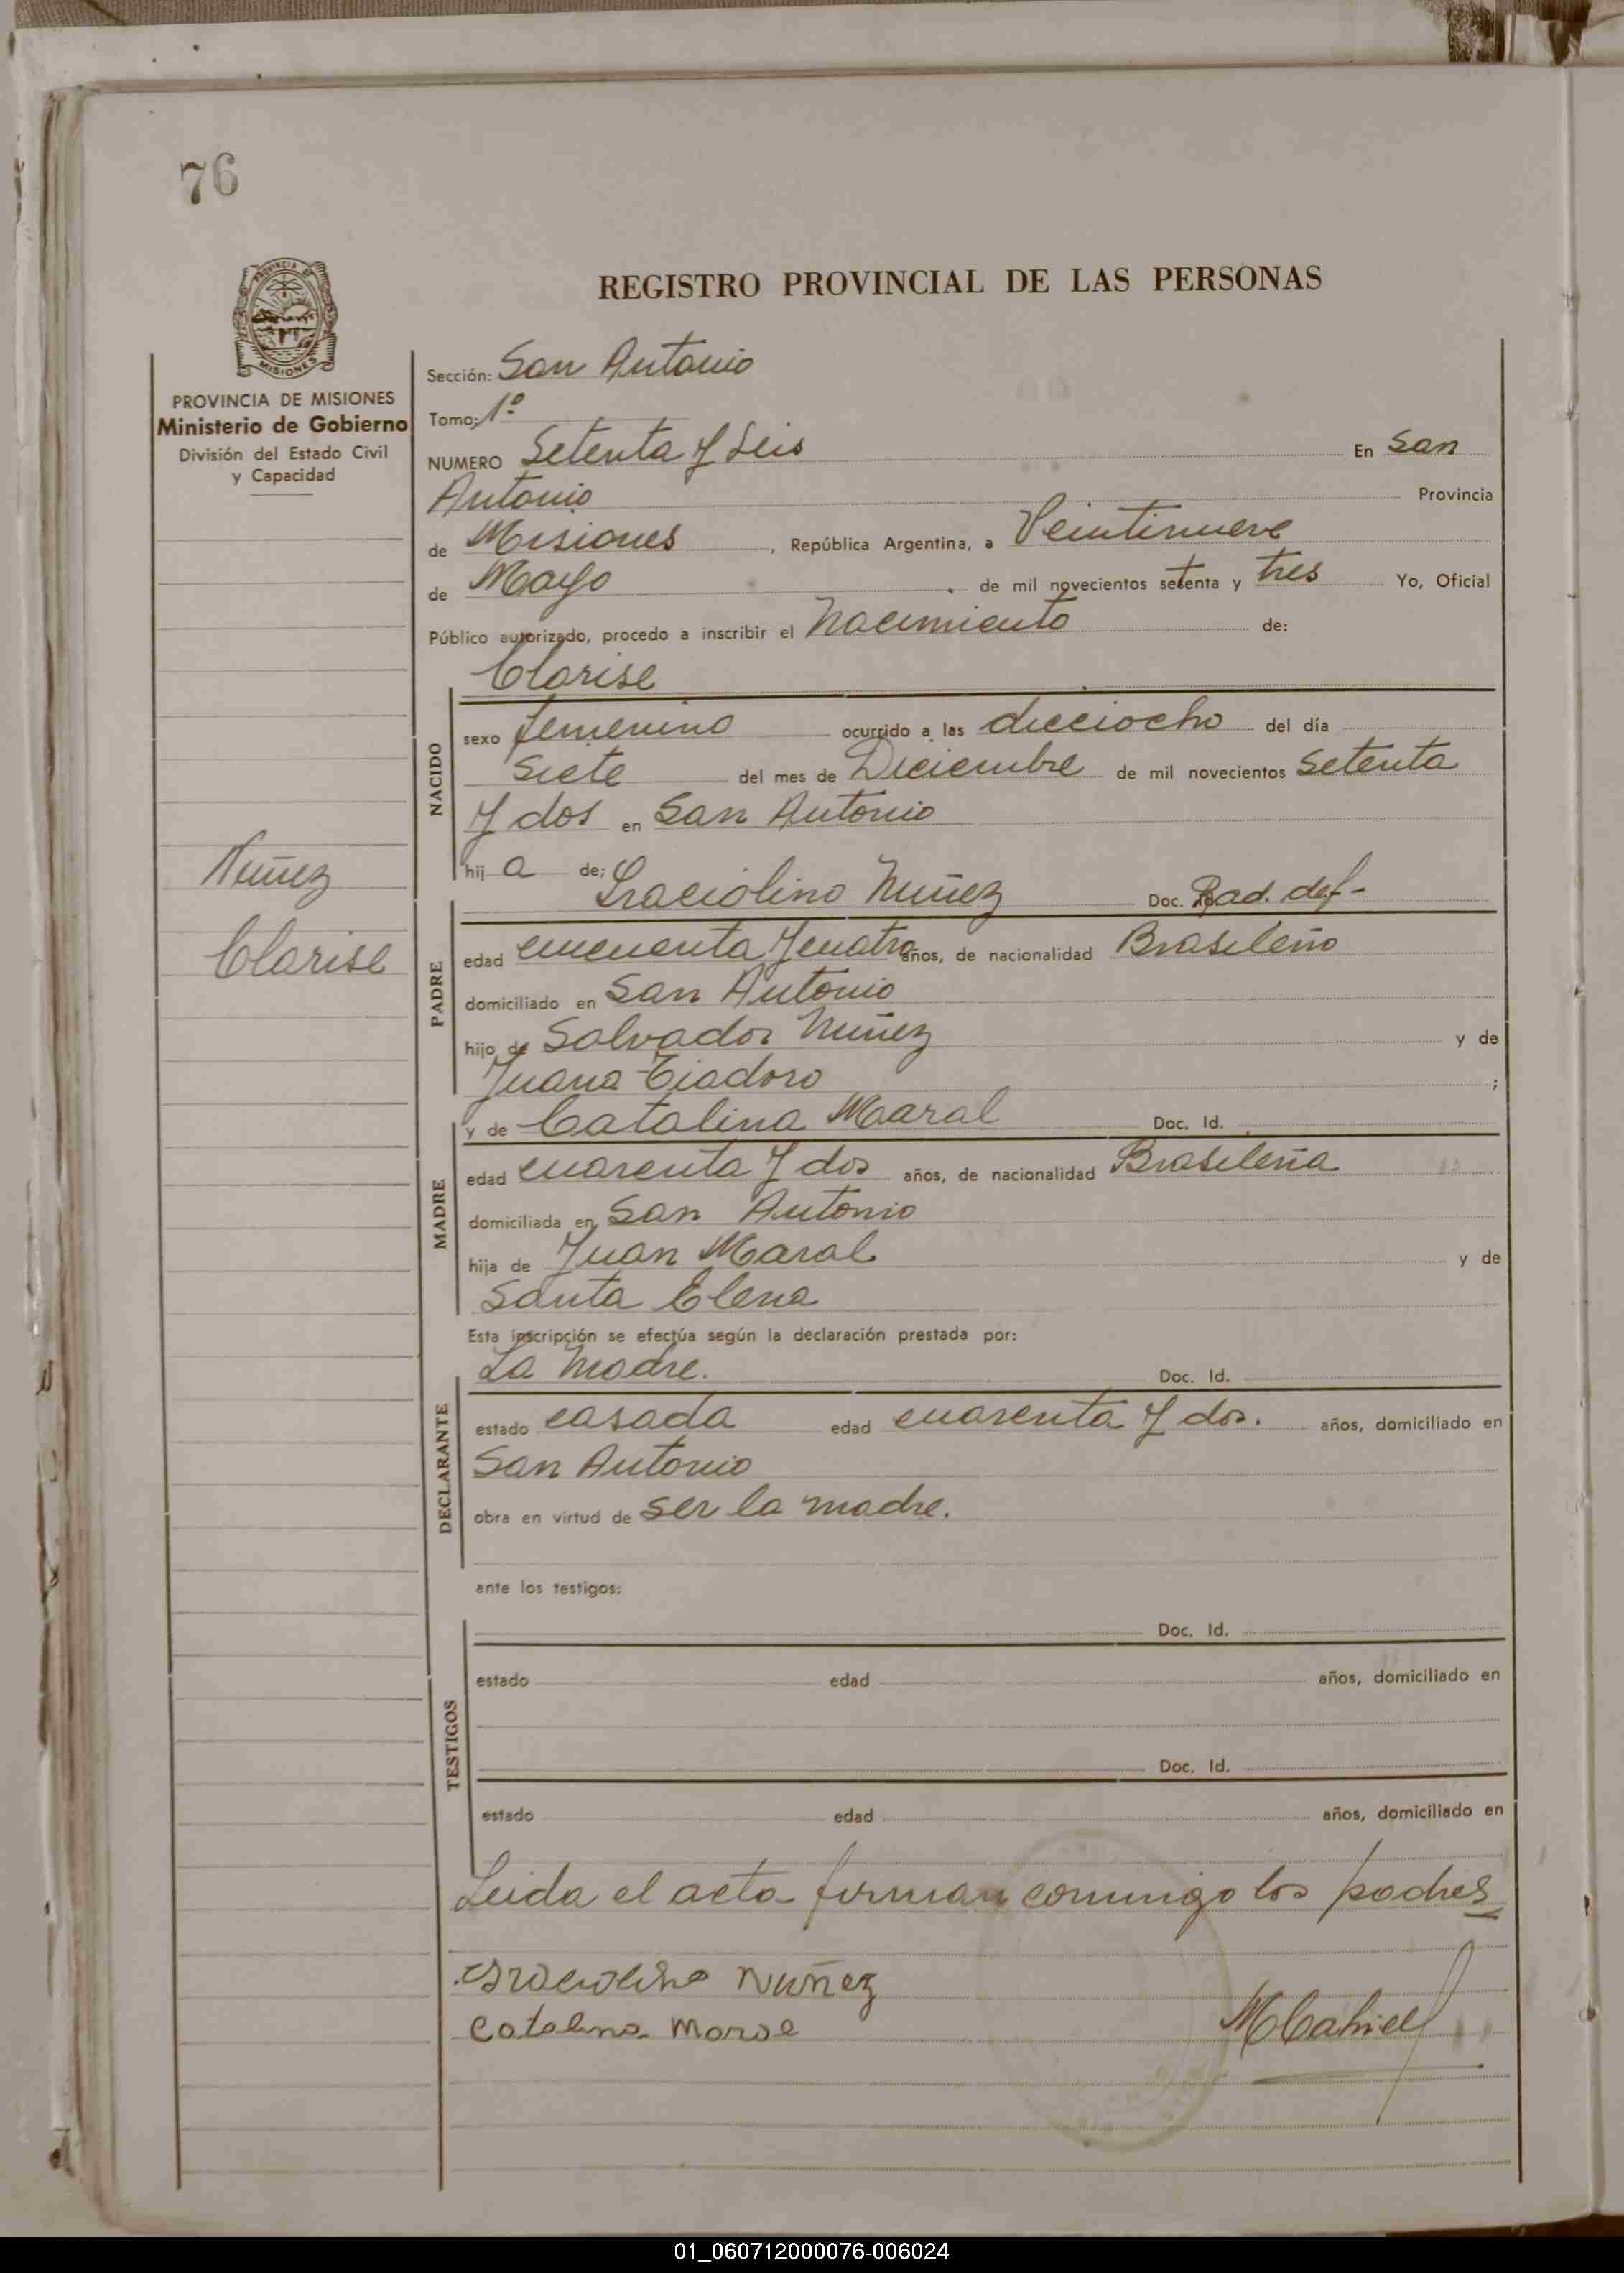 76
PROVINCIA
MISIONES
REGISTRO PROVINCIAL DE LAS PERSONAS
PROVINCIA DE MISIONES
Ministerio de Gobierno
División del Estado Civil
y Capacidad
Sección: San Antonio
Tomo: 1º
NUMERO Setenta y Seis En San
Antonio Provincia
de Misiones, República Argentina, a Veintinueve
de Mayo de mil novecientos setenta y tres Yo, Oficial
Público autorizado, procedo a inscribir el Nacimiento de:
Clarise
NACIDO
sexo femenino ocurrido a las dieciocho del día
Siete del mes de Diciembre de mil novecientos Setenta
y dos en San Antonio
hij a de;
Nuñez
Clarise
Graciolino Nuñez Doc. Rad. def-
PADRE
edad cincuenta y cuatro años, de nacionalidad Brasileño
domiciliado en San Antonio
hijo de Salvador Nuñez y de
Juana Tiadoro ;
y de Catalina Maral Doc. Id.
MADRE
edad cuarenta y dos años, de nacionalidad Brasileña
domiciliada en San Antonio
hija de Juan Maral y de
Santa Elena
Esta inscripción se efectúa según la declaración prestada por:
La Madre. Doc. Id.
DECLARANTE
estado casada edad cuarenta y dos. años, domiciliado en
San Antonio
obra en virtud de ser la madre.
ante los testigos:
Doc. Id.
TESTIGOS
estado edad años, domiciliado en
Doc. Id.
estado edad años, domiciliado en
Leida el acta firman conmigo los padres
Graciolino Nuñez
Catalina Maral
01_060712000076-006024